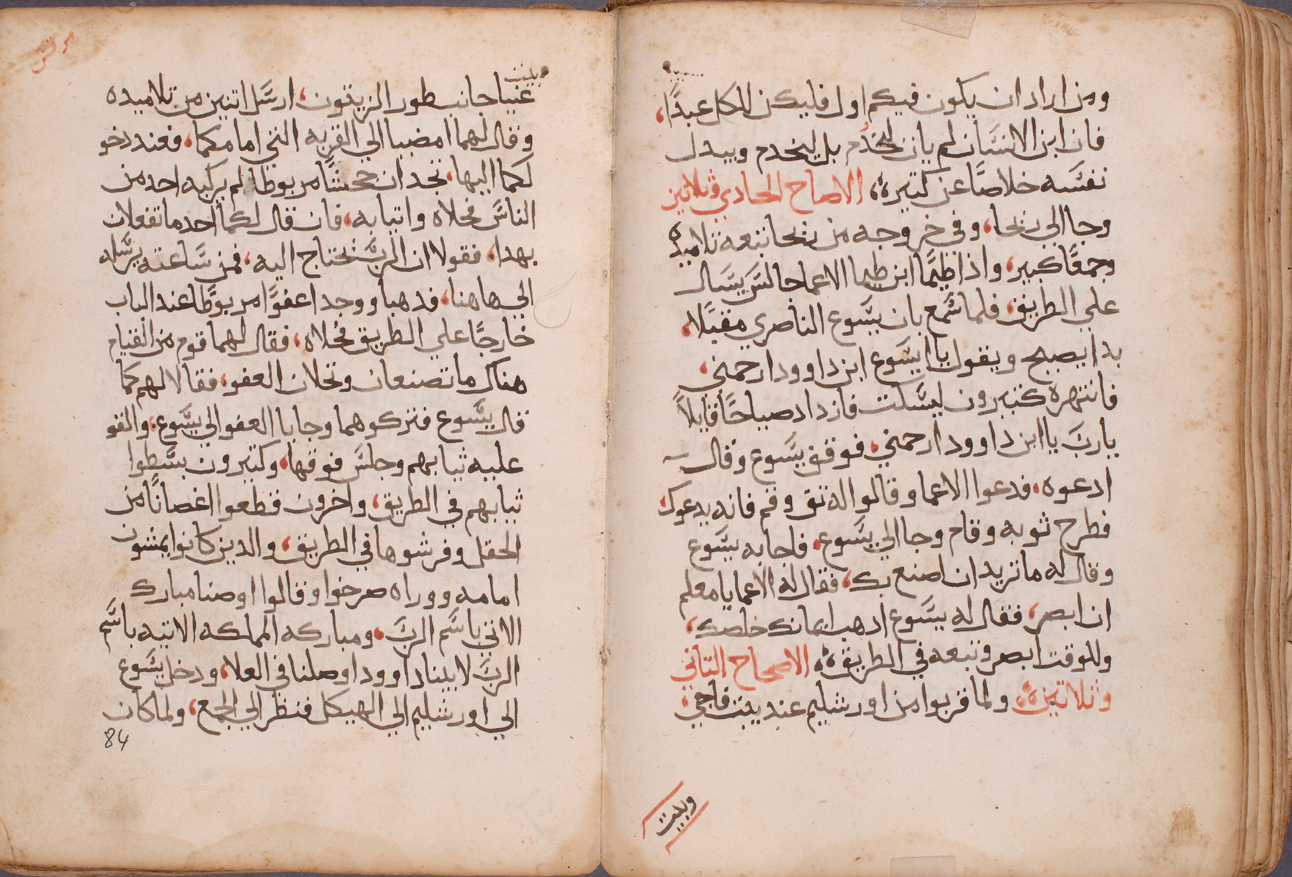 ومن اراد ان يكون فيكم اول فليكن للكل عبدًا،
فان ابن الانسان لم يات ليُخدم بل ليخدم ويبدل
نفسه خلاصًا عن كتيره الاصحاح الحادي وثلاتين
وجا الى يريحا، وفى خروجه من يريحا تبعه تلاميده
وجمعًا كبير، واذا طيما ابن طيما الاعما جالس يسال
على الطريق، فلما سمع بان يسوع الناصري مقبلاً،
بدا يصيح ويقول يا ايسوع ابن داوود ارحمني،
فانتهره كتيرون ليسكت فازداد صياحًا قايلاً
يا رب يا ابن داوود ارحمني، فوقف يسوع وقال
ادعوه، فدعوا الاعما وقالوا له تق وقم فانه يدعوك،
فطرح توبه وقام وجا الى يسوع، فاجابه يسوع
وقال له ما تريد ان اصنع بك، فقال له الاعما يا معلم
ان ابصر، فقال له يسوع ادهب ايمانك خلصك،
وللوقت ابصر وتبعه في الطريق، الاصحاح التاني
وتلاتين ولما قربوا من اورشليم عند بيت فاجي،
وبيت
وبيت
عنيا جانب طور الزيتون، ارسل اتنين من تلاميده
وقال لهما امضيا الي القريه التي امامكما، فعند دخو
لكما اليها، تجدان جحشًا مربوطًا لم يركبه احد من
الناس فحلاه واتيا به، فان قال لكما احد ما تفعلان
بهدا، فقولا ان الرب يحتاج اليه، فمن ساعته يرسله
الى هاهنا، فدهبا ووجدا عفوًا مربوطًا عند الباب
خارجًا علي الطريق فحلاه، فقال لهما قوم من القيام
هناك ما تصنعان وتحلان العفو، فقالا لهم كما
قال يسوع فتركوهما وجابا العفو الي يسوع، والقو
عليه تيابهم وجلس فوقها، وكتيرون بسطوا
تيابهم في الطريق، واخرون قطعوا اغصانًا من
الحقل وفرشوها في الطريق، والدين كانوا يمشون
امامه ووراه صرخوا وقالوا اوصنا مبارك
الاتي باسم الرب، ومباركه المملكه الاتيه باسم
الرب لابينا داوود اوصلنا في العلا، ودخل يسوع
الي اورشليم الي الهيكل فنظر الي الجمع، ولما كان
84